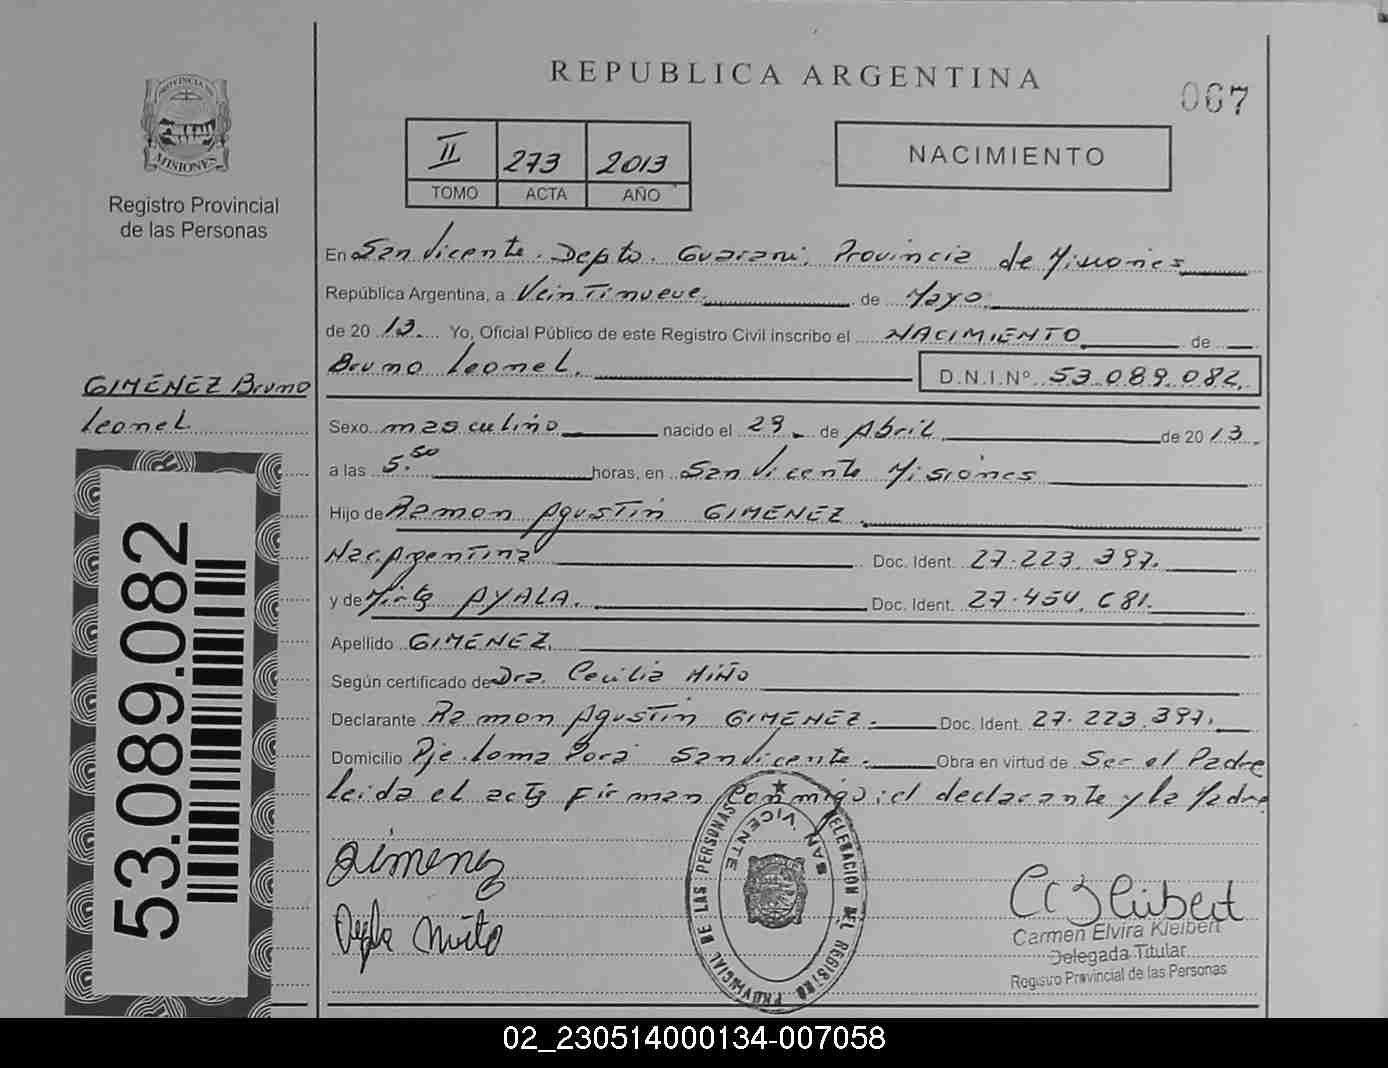 REPUBLICA ARGENTINA
067
PROVINCIA DE
MISIONES
Registro Provincial
de las Personas
II 273 2013
TOMO ACTA AÑO
NACIMIENTO
En San Vicente. Depto. Guarani, Provincia de Misiones
República Argentina, a Veintinueve de Mayo
de 20 13 Yo, Oficial Público de este Registro Civil inscribo el NACIMIENTO de
Bruno Leonel. D.N.I.Nº 53.089.082.
GIMÉNEZ Bruno
Leonel
Sexo masculino nacido el 29 de Abril de 20 13.
a las 5.50 horas, en San Vicente Misiones
Hijo de Ramon Agustin GIMENEZ
Nac. Argentina Doc. Ident. 27.223.397.
y de Mirta AYALA. Doc. Ident. 27.454.681.
Apellido GIMENEZ.
Según certificado de Dra. Cecilia MIÑO
Declarante Ramon Agustin GIMENEZ. Doc. Ident. 27.223.397.
Domicilio Pje. Loma Porá San Vicente. Obra en virtud de Ser el Padre
leida el acta firman conmigo: el declarante y la Madre
53.089.082
Gimenez
DELEGACION DEL REGISTRO PROVINCIAL DE LAS PERSONAS
SAN VICENTE
Carmen Elvira Kleibert
Delegada Titular
Registro Provincial de las Personas
02_230514000134-007058